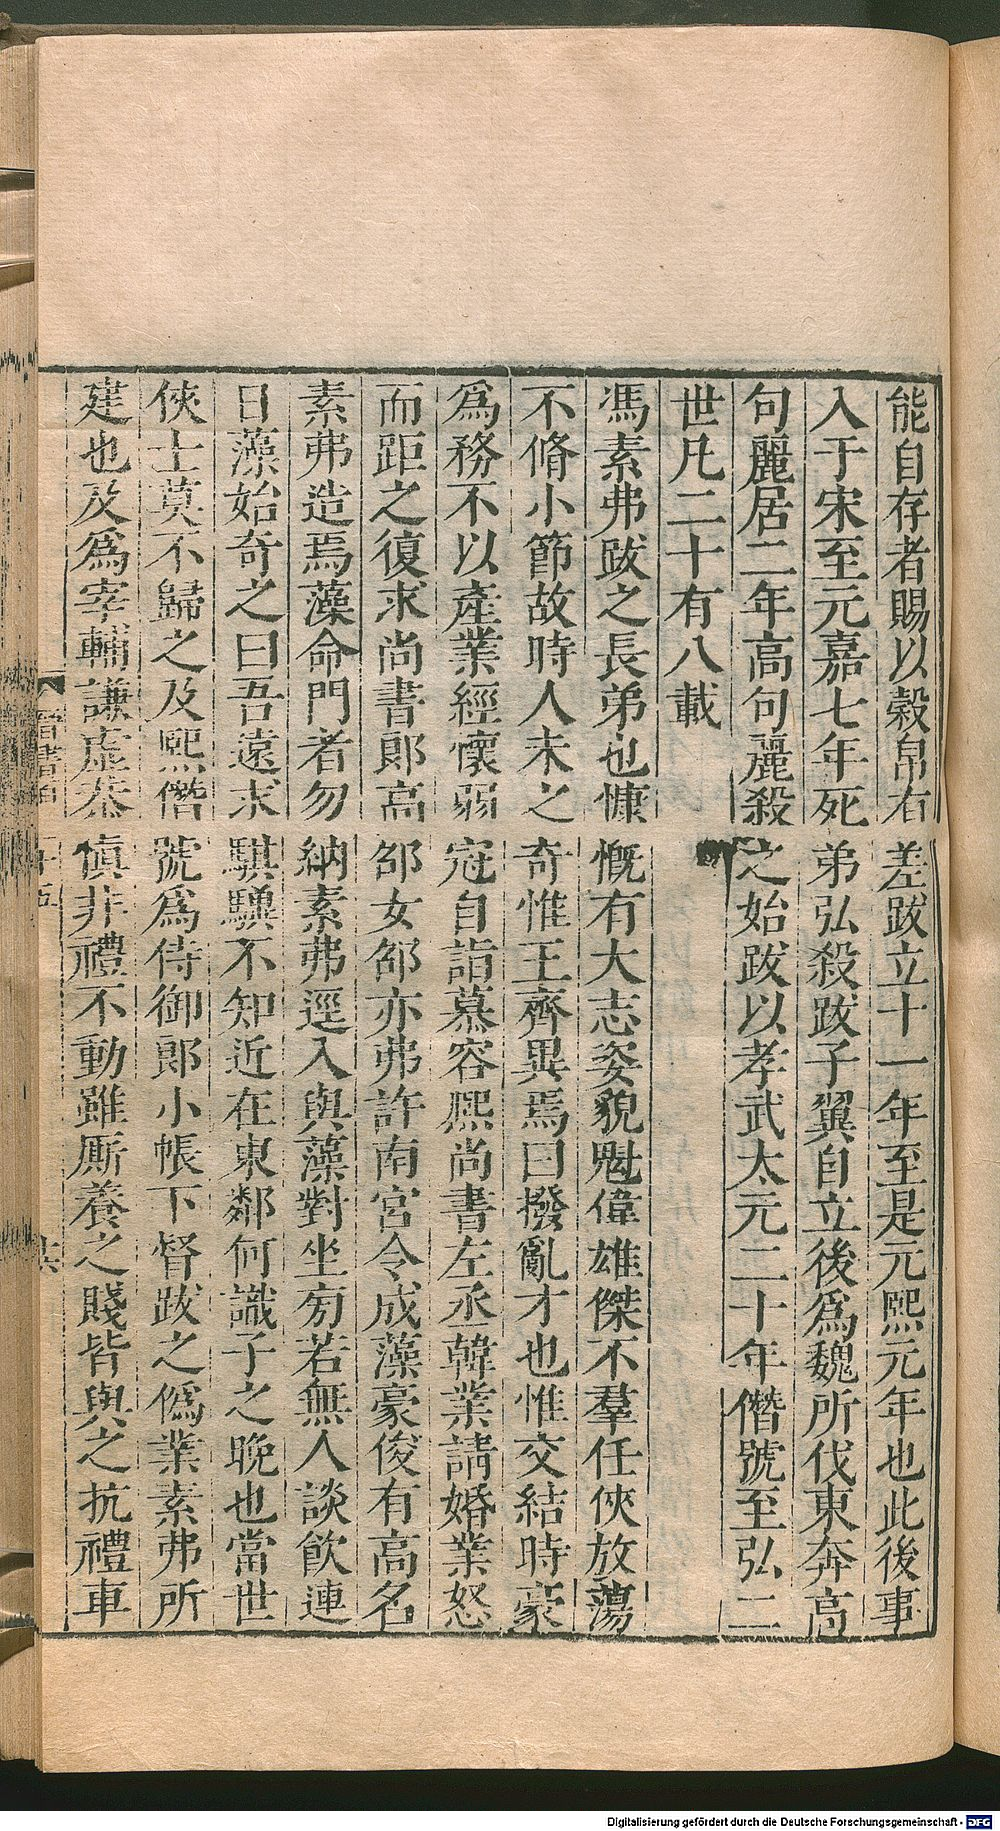 能自存者賜以穀帛有差跋立十一年至是元熙元年也此後事
入于宋至元嘉七年死弟弘殺跋子翼自立後為魏所伐東奔高
句麗居二年高句麗殺之始跋以孝武太元二十年僭號至弘二
世凡二十有八載
馮素弗跋之長弟也慷慨有大志姿貌魁偉雄傑不羣任俠放蕩
不脩小節故時人未之奇惟王齊異焉曰撥亂才也惟交結時豪
爲務不以產業經懷弱冠自詣慕容熙尚書左丞韓業請婚業怒
而距之復求尚書郎高邵女邵亦弗許南宮令成藻豪俊有高名
素弗造焉藻命門者勿納素弗逕入與藻對坐旁若無人談飲連
日藻始奇之曰吾遠求騏驥不知近在東鄰何識子之晚也當世
俠士莫不歸之及熙僭號爲侍御郎小帳下督跋之僞業素弗所
建也及爲宰輔謙虛恭慎非禮不動雖厮養之賤皆與之抗禮車
Digitalisierung gefördert durch die Deutsche Forschungsgemeinschaft - DFG